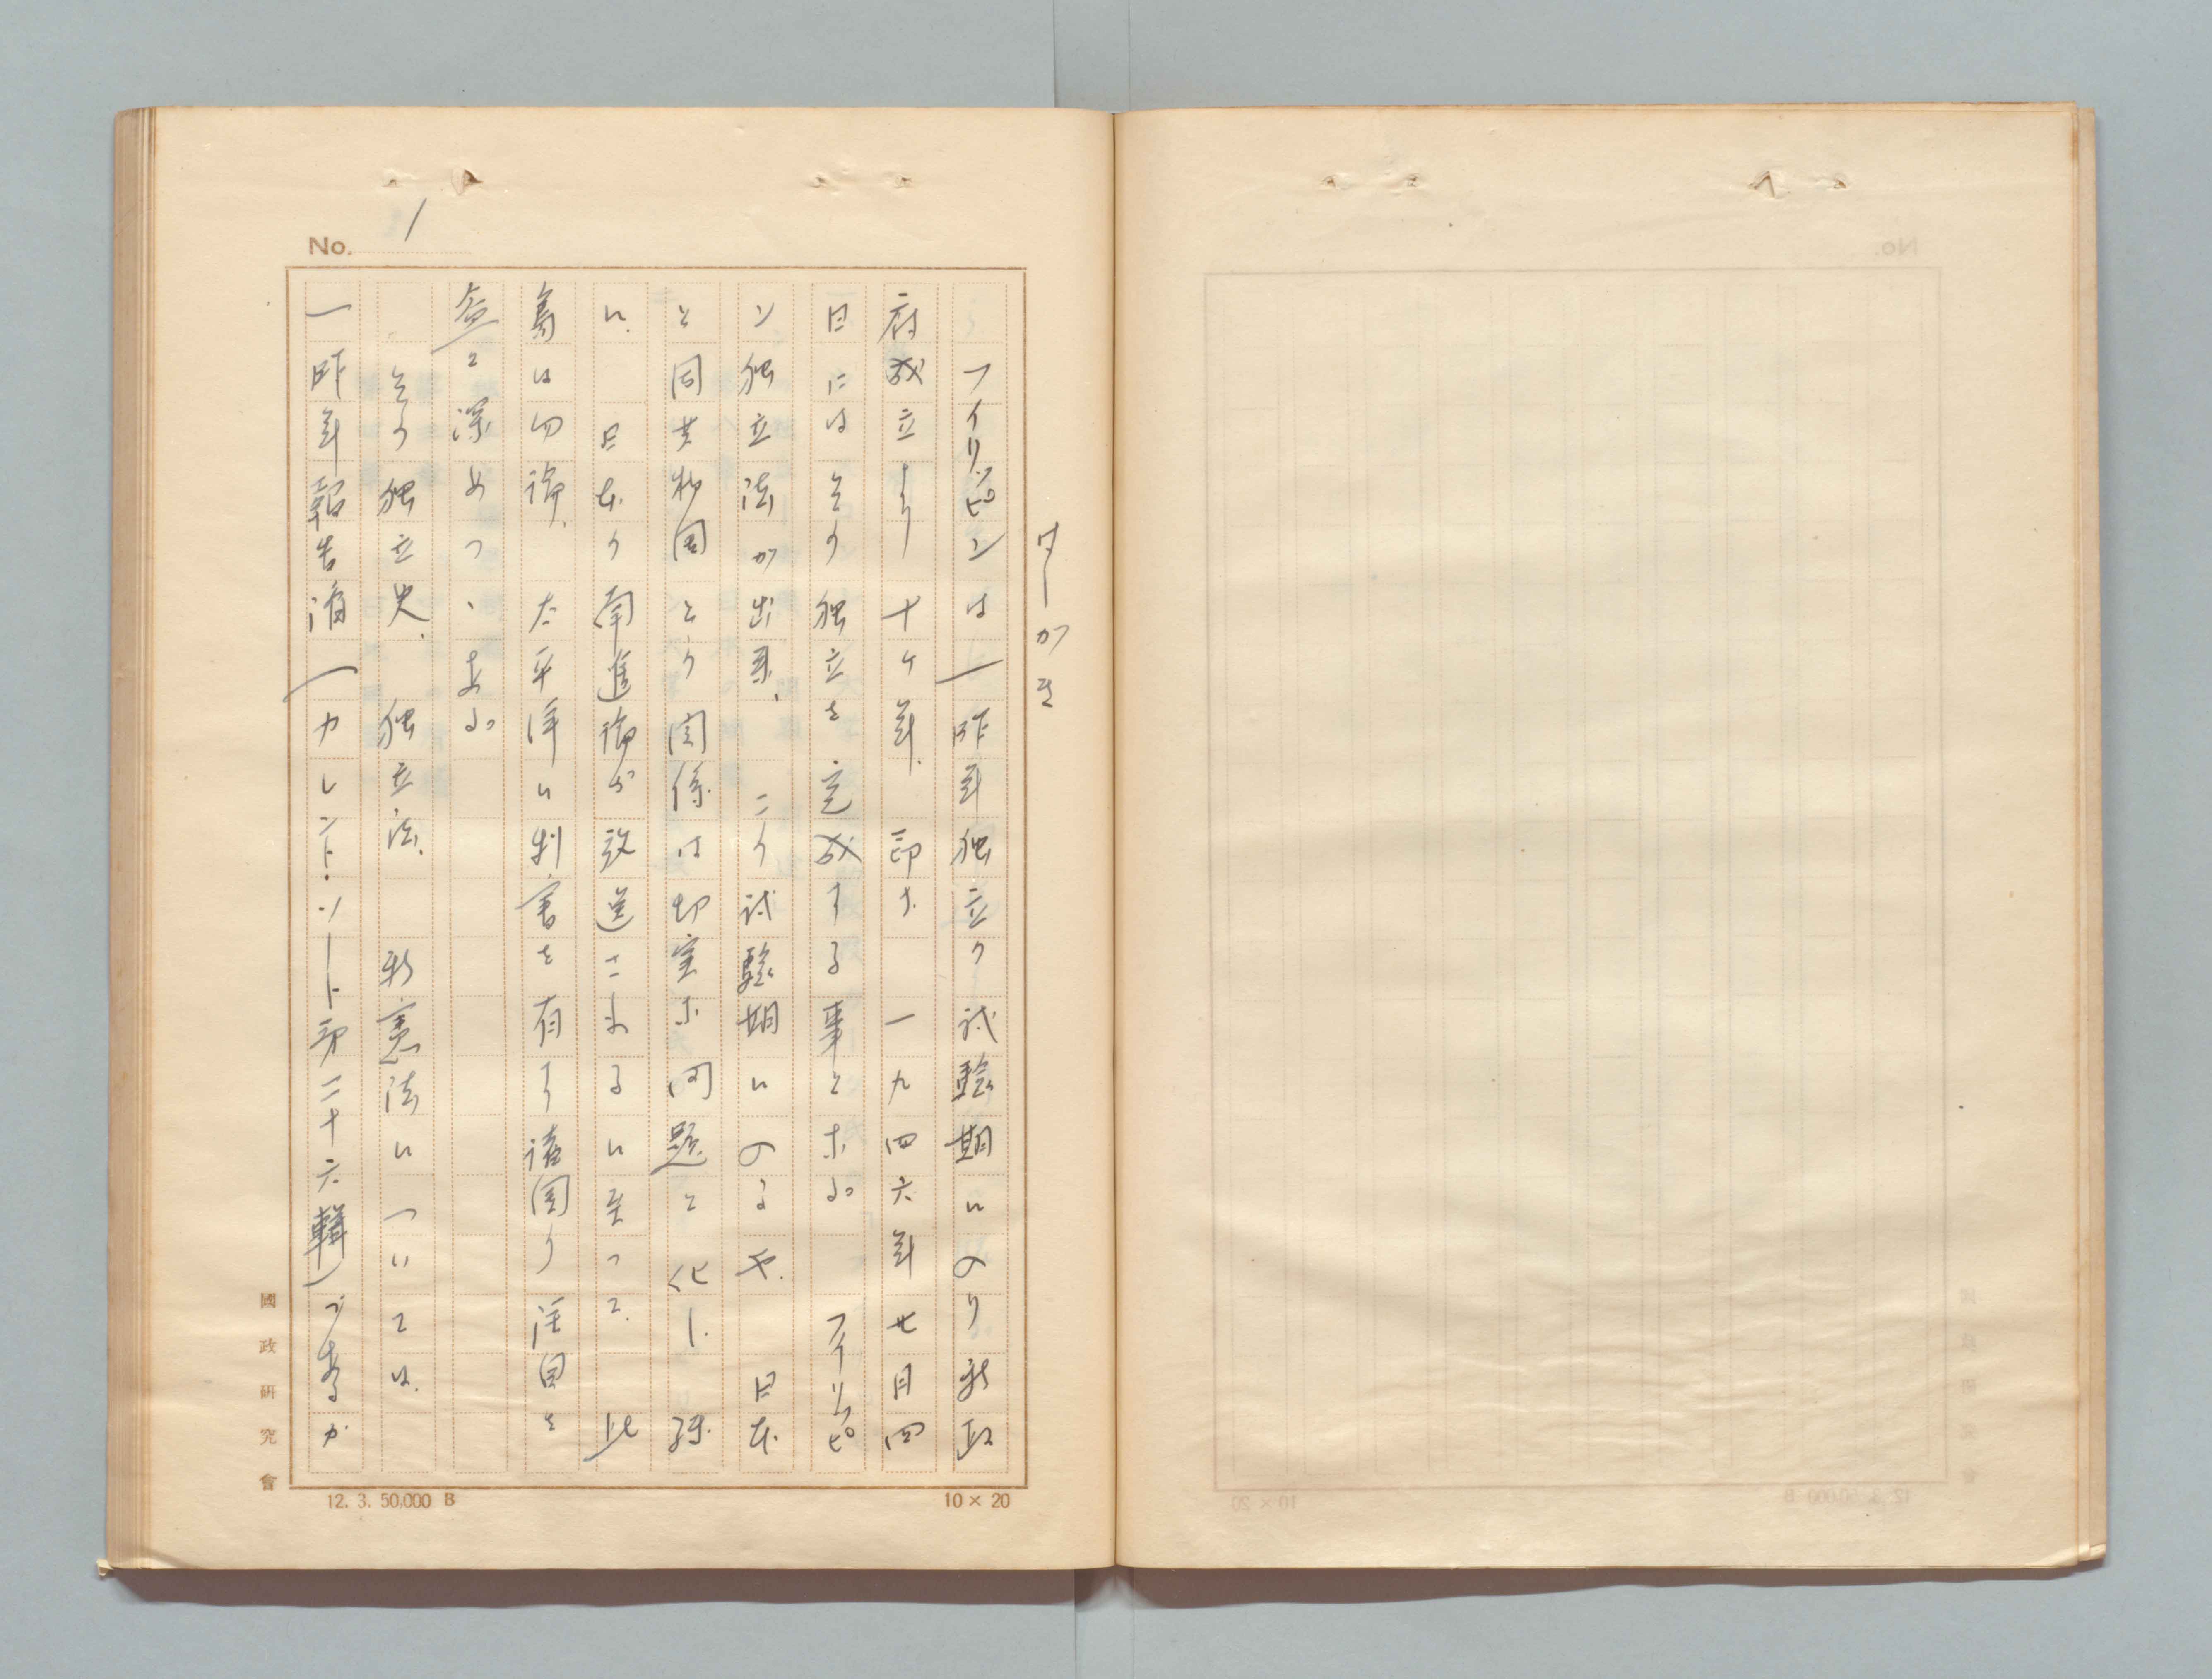 No. 1
はしがき
フイリッピンは、昨年独立の試驗期に入り新政
府成立より十ケ年、即ち一九四六年七月四
日にはその独立を完成する事となる。フイリッピ
ン独立法が出来、この試驗期に入るや、日本
と同共和国との関係は切実な問題と化し、殊
に、日本の南進論が放送されるに至つて、此
島は勿論、太平洋に利害を有する諸国の注目を
益々深めつゝある。
その独立史、独立法、新憲法については、
一昨年報告濟（カレント・ソート第二十六輯）であるが
國政研究會
12. 3. 50,000 B
10 × 20